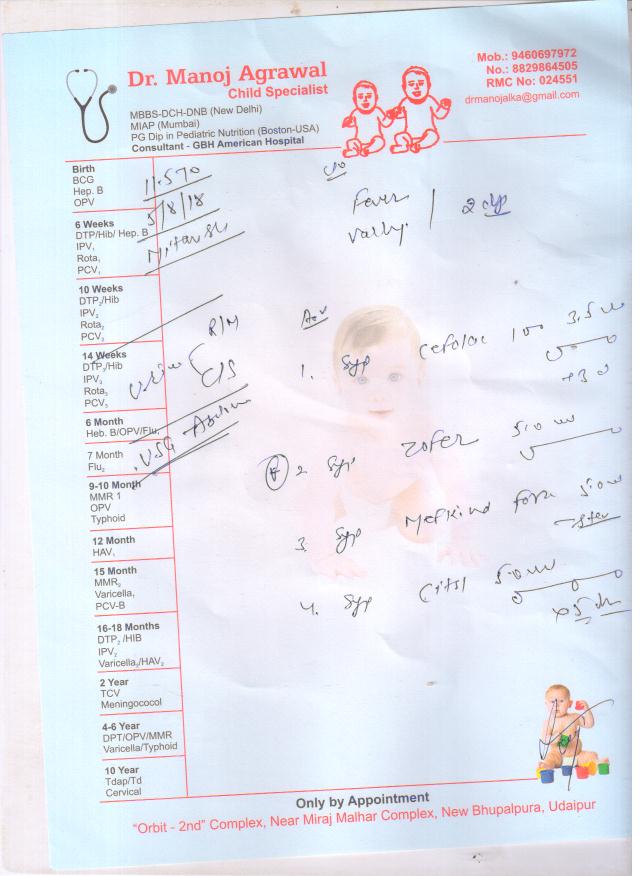 Dr. Manoj Agrawal
Child Specialist
MBBS-DCH-DNB (New Delhi)
MIAP (Mumbai)
PG Dip in Pediatric Nutrition (Boston-USA)
Consultant - GBH American Hospital
Mob.: 9460697972
No.: 8829864505
RMC No: 024551
drmanojalka@gmail.com
Birth
BCG
Hep. B
OPV
6 Weeks
DTP/Hib/ Hep. B
IPV₁
Rota₁
PCV₁
10 Weeks
DTP₂/Hib
IPV₂
Rota₂
PCV₂
14 Weeks
DTP₃/Hib
IPV₃
Rota₃
PCV₃
6 Month
Heb. B/OPV/Flu₁
7 Month
Flu₂
9-10 Month
MMR 1
OPV
Typhoid
12 Month
HAV₁
15 Month
MMR₂
Varicella₁
PCV-B
16-18 Months
DTP₂ /HIB
IPV₂
Varicella₂/HAV₂
2 Year
TCV
Meningococol
4-6 Year
DPT/OPV/MMR
Varicella/Typhoid
10 Year
Tdap/Td
Cervical
11.570
5/8/18
c/o
Fever
2 d
R/M
C/S
USG
Adv
1. Syp 100 3.5
2. Syp Zofer 5.0
3. Syp Mefkind forte 5.0
4. Syp 5.0
x 5
Only by Appointment
"Orbit - 2nd" Complex, Near Miraj Malhar Complex, New Bhupalpura, Udaipur